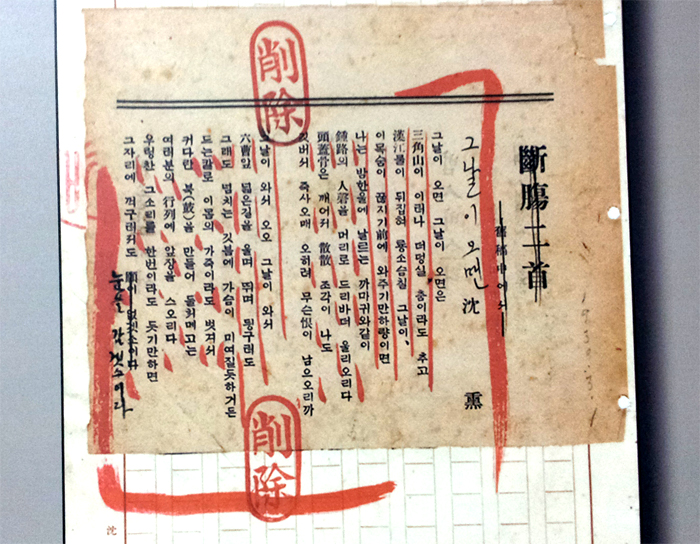 斷膓二首
—舊稿中에서—
그날이 오면 沈 熏
그날이 오면 그날이 오면은
三角山이 이러나 더덩실 춤이라도 추고
漢江물이 뒤집혀 룡소슴칠 그날이,
이목숨이 끊지기前에 와주기만하량이면
나는 밤한울에 날르는 까마귀와같이
鍾路의 人磬을 머리로 드리바더 울리오리다
頭蓋骨은 깨어저 散散 조각이 나도
깃버서 죽사오매 오히려 무슨恨이 남으오리까
그날이 와서 오오 그날이 와서
六曹앞 넓은길을 울며 뛰며 딍구러도
그래도 넘치는 깃븜에 가슴이 미여질듯하거든
드는칼로 이몸의 가죽이라도 벗겨서
커다란 북(鼓)을 만들어 들처메고는
여러분의 行列에 앞장을 스오리다
우렁찬 그소리를 한번이라도 듯기만하면
그자리에 꺽구러저도
눈을 감겟소이다
削除
削除
沈